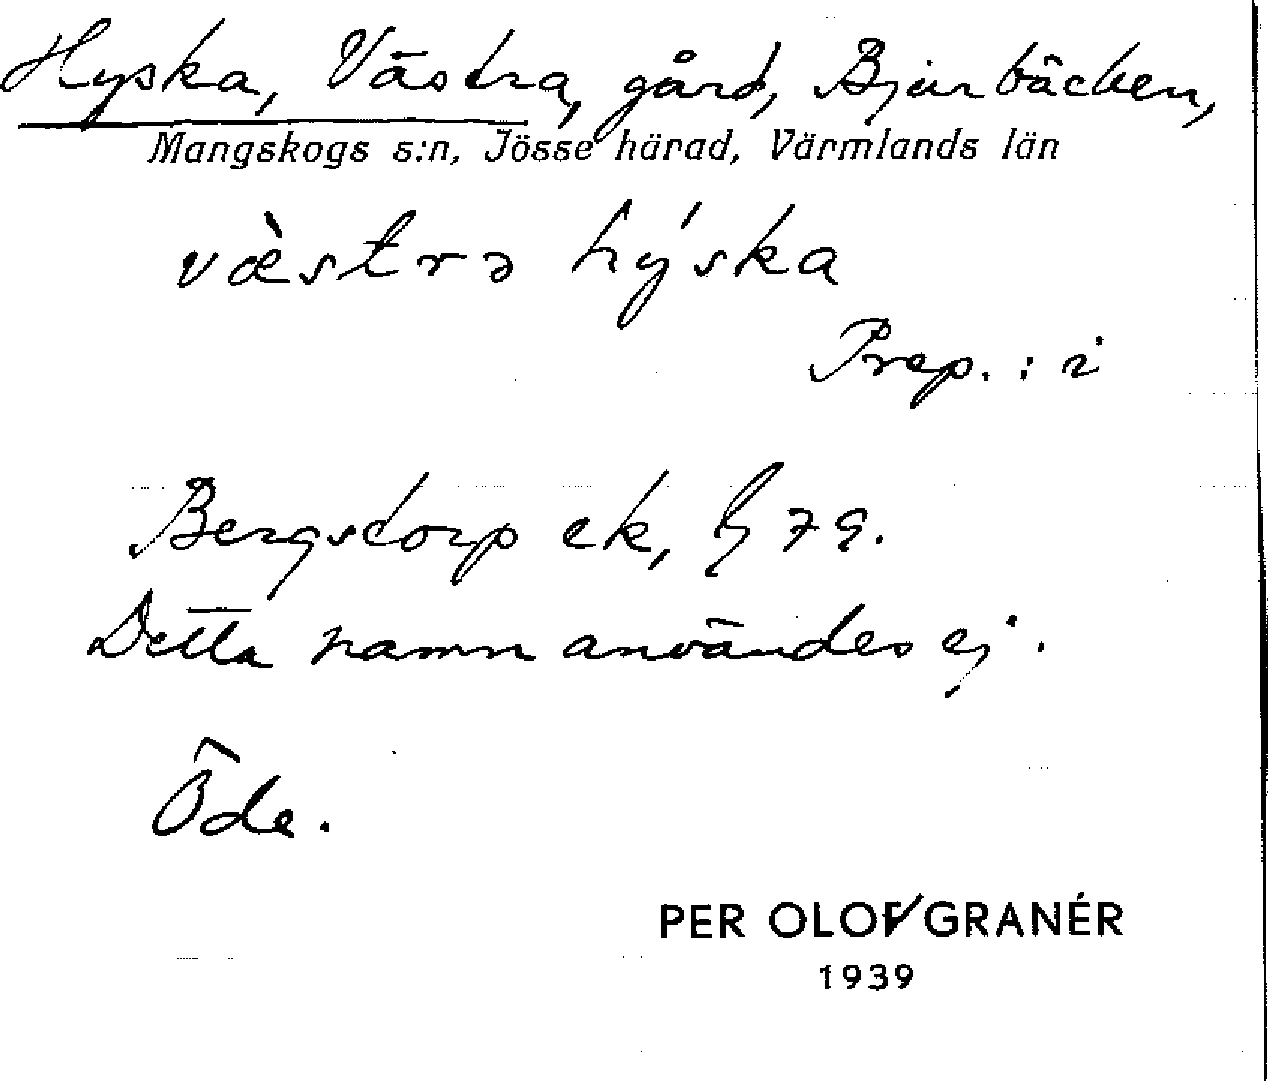 Hyska, Västra, gård, Bjurbäcken,
Mangskogs s:n, Jösse härad, Värmlands län
væ̀strə hýska
Prep.: i
Bergstorp ek, G 79.
Detta namn användes ej.
Öde.
PER OLOF GRANÉR
1939